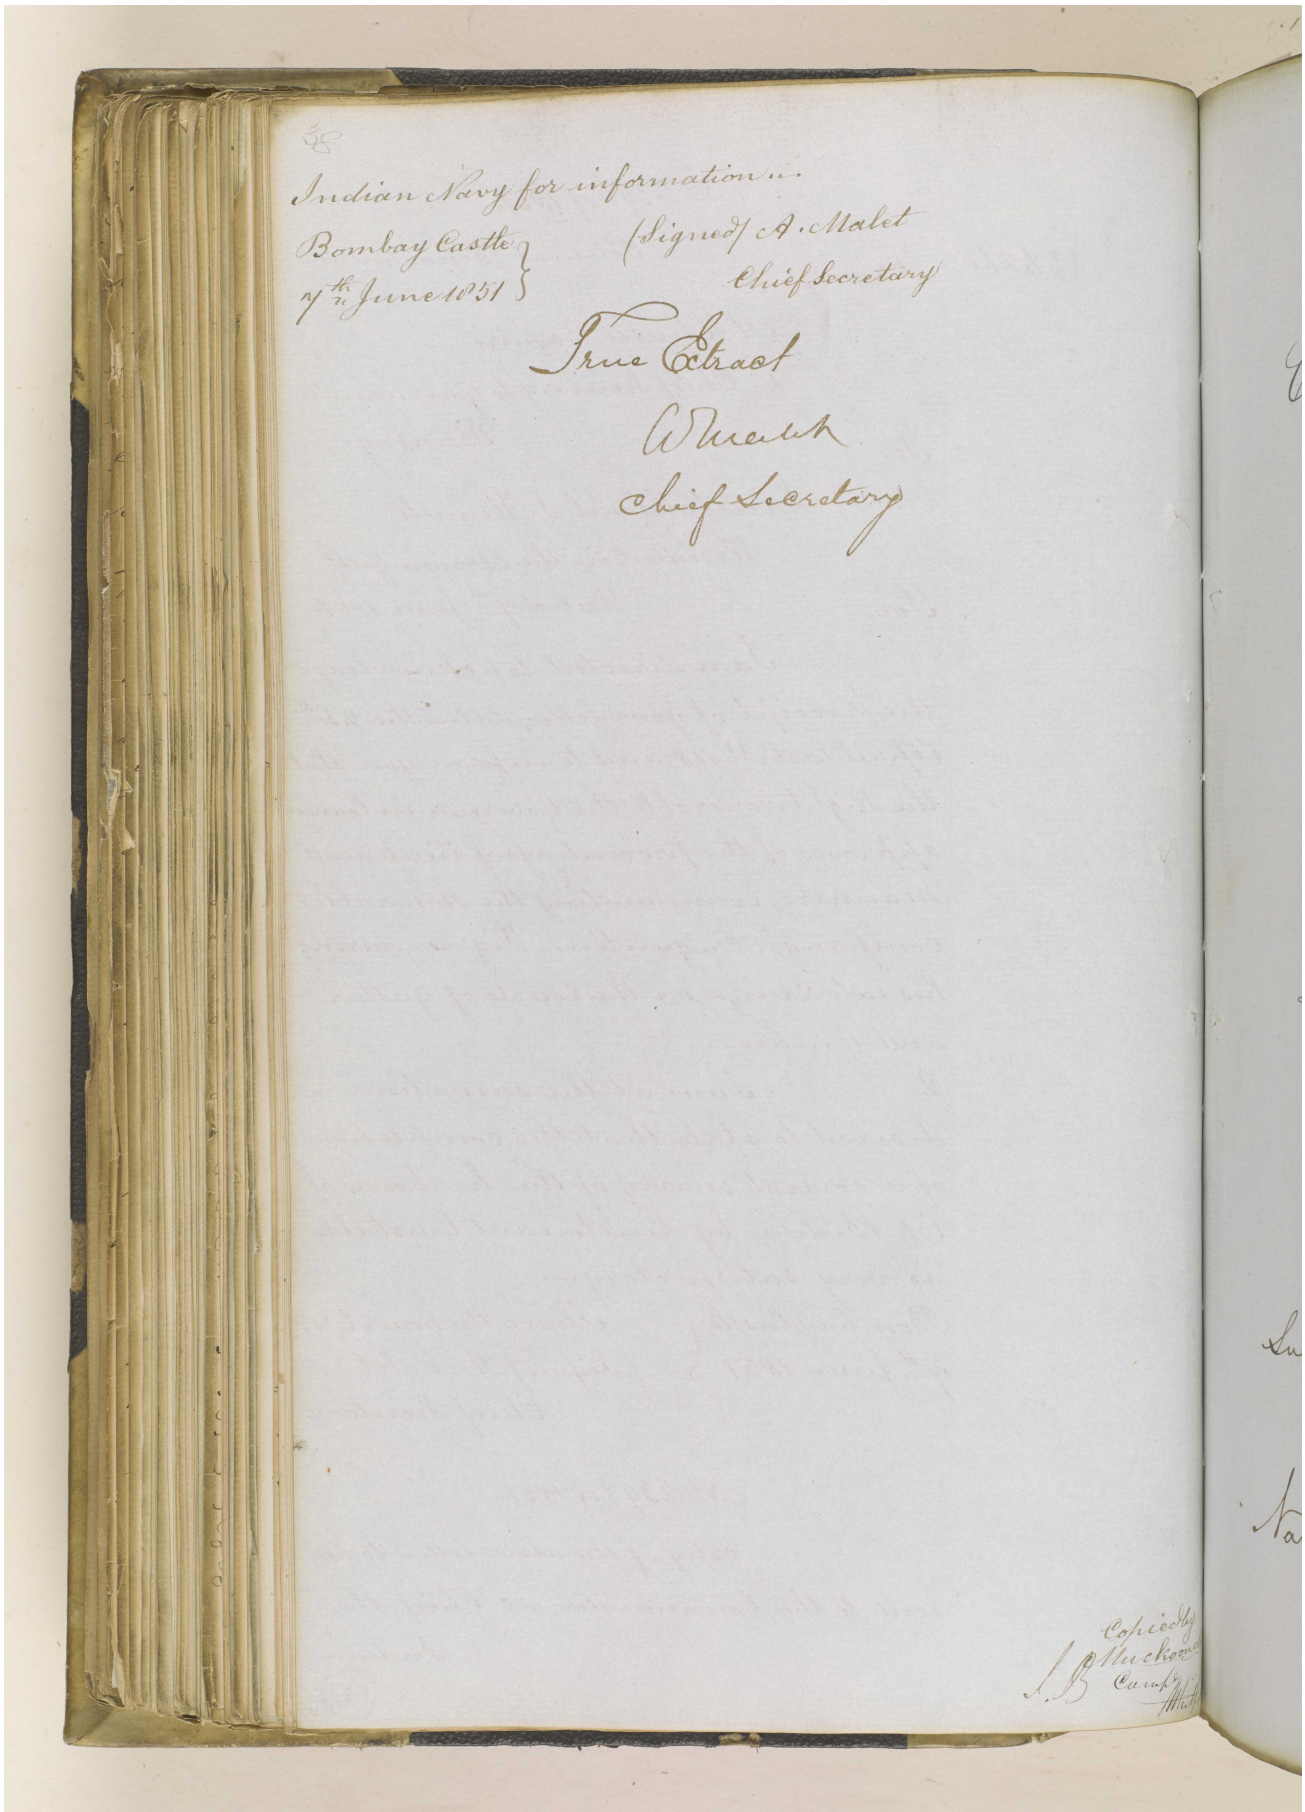 38
Indian Navy for information...
Bombay Castle } (Signed) A. Malet
7th June 1851 } Chief Secretary
True Extract
A Malet
Chief Secretary
Copied by
Comp